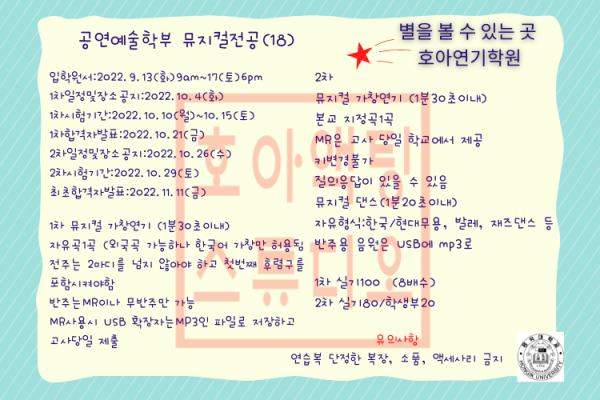 공연예술학부 뮤지컬전공(18)
별을 볼 수 있는 곳
호아연기학원
입학원서:2022. 9. 13(화)9am~17(토)6pm
1차일정및장소공지:2022. 10. 4(화)
1차시험기간:2022. 10. 10(월)~10. 15(토)
1차합격자발표:2022. 10. 21(금)
2차일정및장소공지:2022. 10. 26(수)
2차시험기간:2022. 10. 29(토)
최초합격자발표:2022. 11. 11(금)
1차 뮤지컬 가창연기 (1분30초이내)
자유곡1곡 (외국곡 가능하나 한국어 가창만 허용됨
전주는 2마디를 넘지 않아야 하고 첫번째 후렴구를
포함시켜야함
반주는MR이나 무반주만 가능
MR사용시 USB 확장자는MP3인 파일로 저장하고
고사당일 제출
2차
뮤지컬 가창연기 (1분30초이내)
본교 지정곡1곡
MR은 고사 당일 학교에서 제공
키변경불가
질의응답이 있을 수 있음
뮤지컬 댄스(1분20초이내)
자유형식:한국/현대무용, 발레, 재즈댄스 등
반주용 음원은 USB에 mp3로
1차 실기100 (8배수)
2차 실기80/학생부20
유의사항
연습복 단정한 복장, 소품, 액세사리 금지
호아액팅
스튜디오